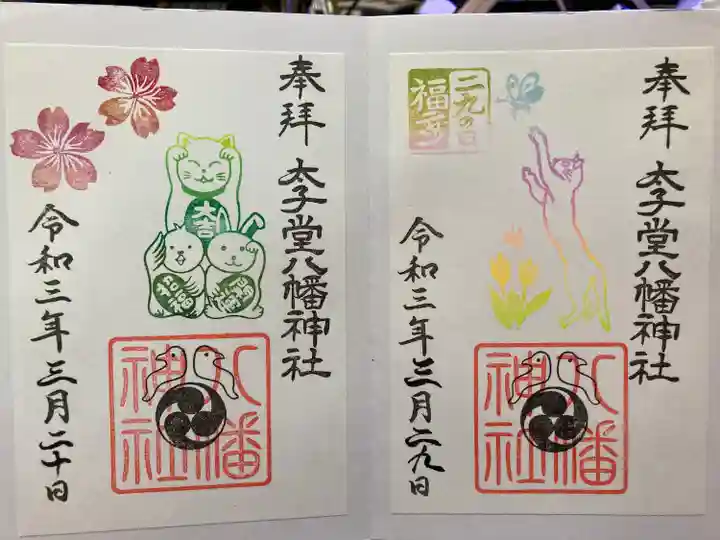 奉拝
太子堂八幡神社
大吉
八幡
神社
令和三年三月二十日
奉拝
太子堂八幡神社
二九の日
福
八幡
神社
令和三年三月二九日